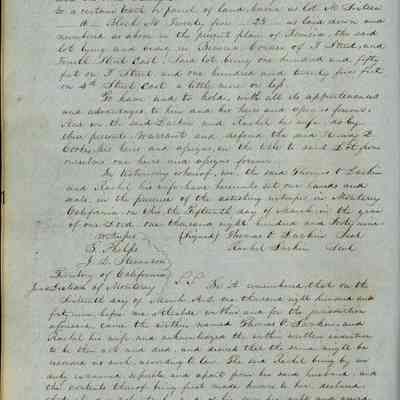 to a certain lot or parcel of land, known as Lot No Sixteen
16 — Block No Twenty five — 25 — as laid down and
numbered as above in the present plan of Benicia, the said
lot lying and being in Benicia, Corner of I Street, and
Fourth Street East. Said lot, being one hundred and fifty
feet on I Street and one hundred and twenty five feet
on 4th Street East a little more or less.
To have and to hold, with all its appurtenances
and advantages to him and his heirs and assigns forever.
And we the said Larkin and Rachel his wife, do by
these presents Warrant and defend the said Henry D.
Cooke, his heirs and assigns, in the title to said Lot from
ourselves our heirs and assigns forever.
In testimony whereof, we, the said Thomas O Larkin
and Rachel his wife have hereunto set our hands and
seals, in the presence of the attesting witnesses, in Monterey
California on this, the Fifteenth day of March, in the year
of our Lord one thousand eight hundred and forty nine
Witness (Signed) Thomas O. Larkin Seal
S. Phelps Rachel Larkin Seal
J. D. Stevenson
Territory of California
District of Monterey S.S. Be it remembered that on the
Sixteenth day of March A.D. one thousand eight hundred and
forty nine, before me Alcalde within and for the jurisdiction
aforesaid, came the within named Thomas O. Larkin, and
Rachel his wife and acknowledged the within written
to be their act and deed, and desired that the same might be
recorded as such, according to law. The said Rachel being by me
duly examined separate and apart from her said husband, and
the contents thereof being first made known to her, declared